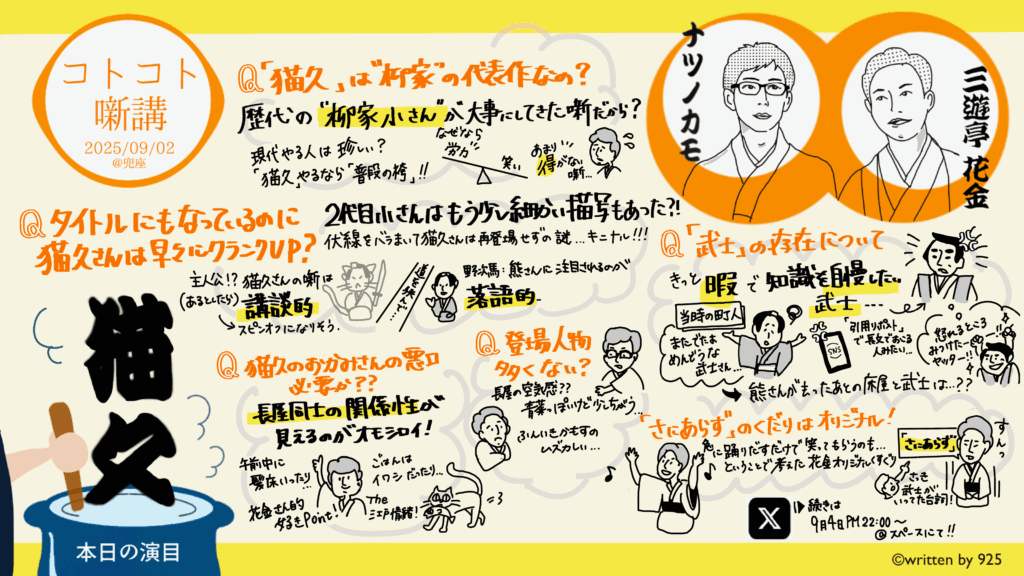 コトコト
噺講
2025/09/02
@兜座
Q「猫久」は"柳家"の代表作なの?
歴代の"柳家小さん"が大事にしてきた噺だから?
現代やる人は珍しい?
「猫久」やるなら"普段の袴"!!
なぜなら
労力
笑い
あまり
得がない
噺…
ナツノカモ
三遊亭 花金
Q タイトルにもなっているのに
猫久さんは早々にクランクUP?
2代目小さんはもう少し細かい描写もあった?!
伏線をバラまいて猫久さんは再登場せずの謎…キニナル!!!
主人公!? 猫久さんの噺は
(あるとしたら)
講談的
→スピンオフになりそう.
道を挟んで…
野次馬:熊さんに注目されるのが
落語的.
Q「武士」の存在について
きっと 暇 で 知識を自慢したい
武士…
当時の町人
まためんどうな
武士さん…
SNS
「引用リポスト」
で長文であごる
人みたい…
怒れるところ
みつけたー
ヤッター!!
→熊さんが去ったあとの床屋と武士は…??
猫久
Q 猫久のおかみさんの悪口
必要か??
長屋同士の関係性が
見えるのがオモシロイ!
午前中に
髪床いったり…
ごはんは
イワシだったり…
花金さん的
好きPoint!
The
江戸情緒!
=3
Q 登場人物
多くない?
長屋の空気感??
青菜っぽいけど少しちがう…
ふんいきかもすの
ムズカしい…
「さにあらず」のくだりはオリジナル!
急に踊りだすだけで笑ってもらうのも…
ということで考えた花金オリジナルくすぐり
「さにあらず」
すんっ
さっき
武士が
いってた台詞!
X
▷続きは
9月4日PM 22:00~
@スペースにて!!
本日の演目
©written by 925